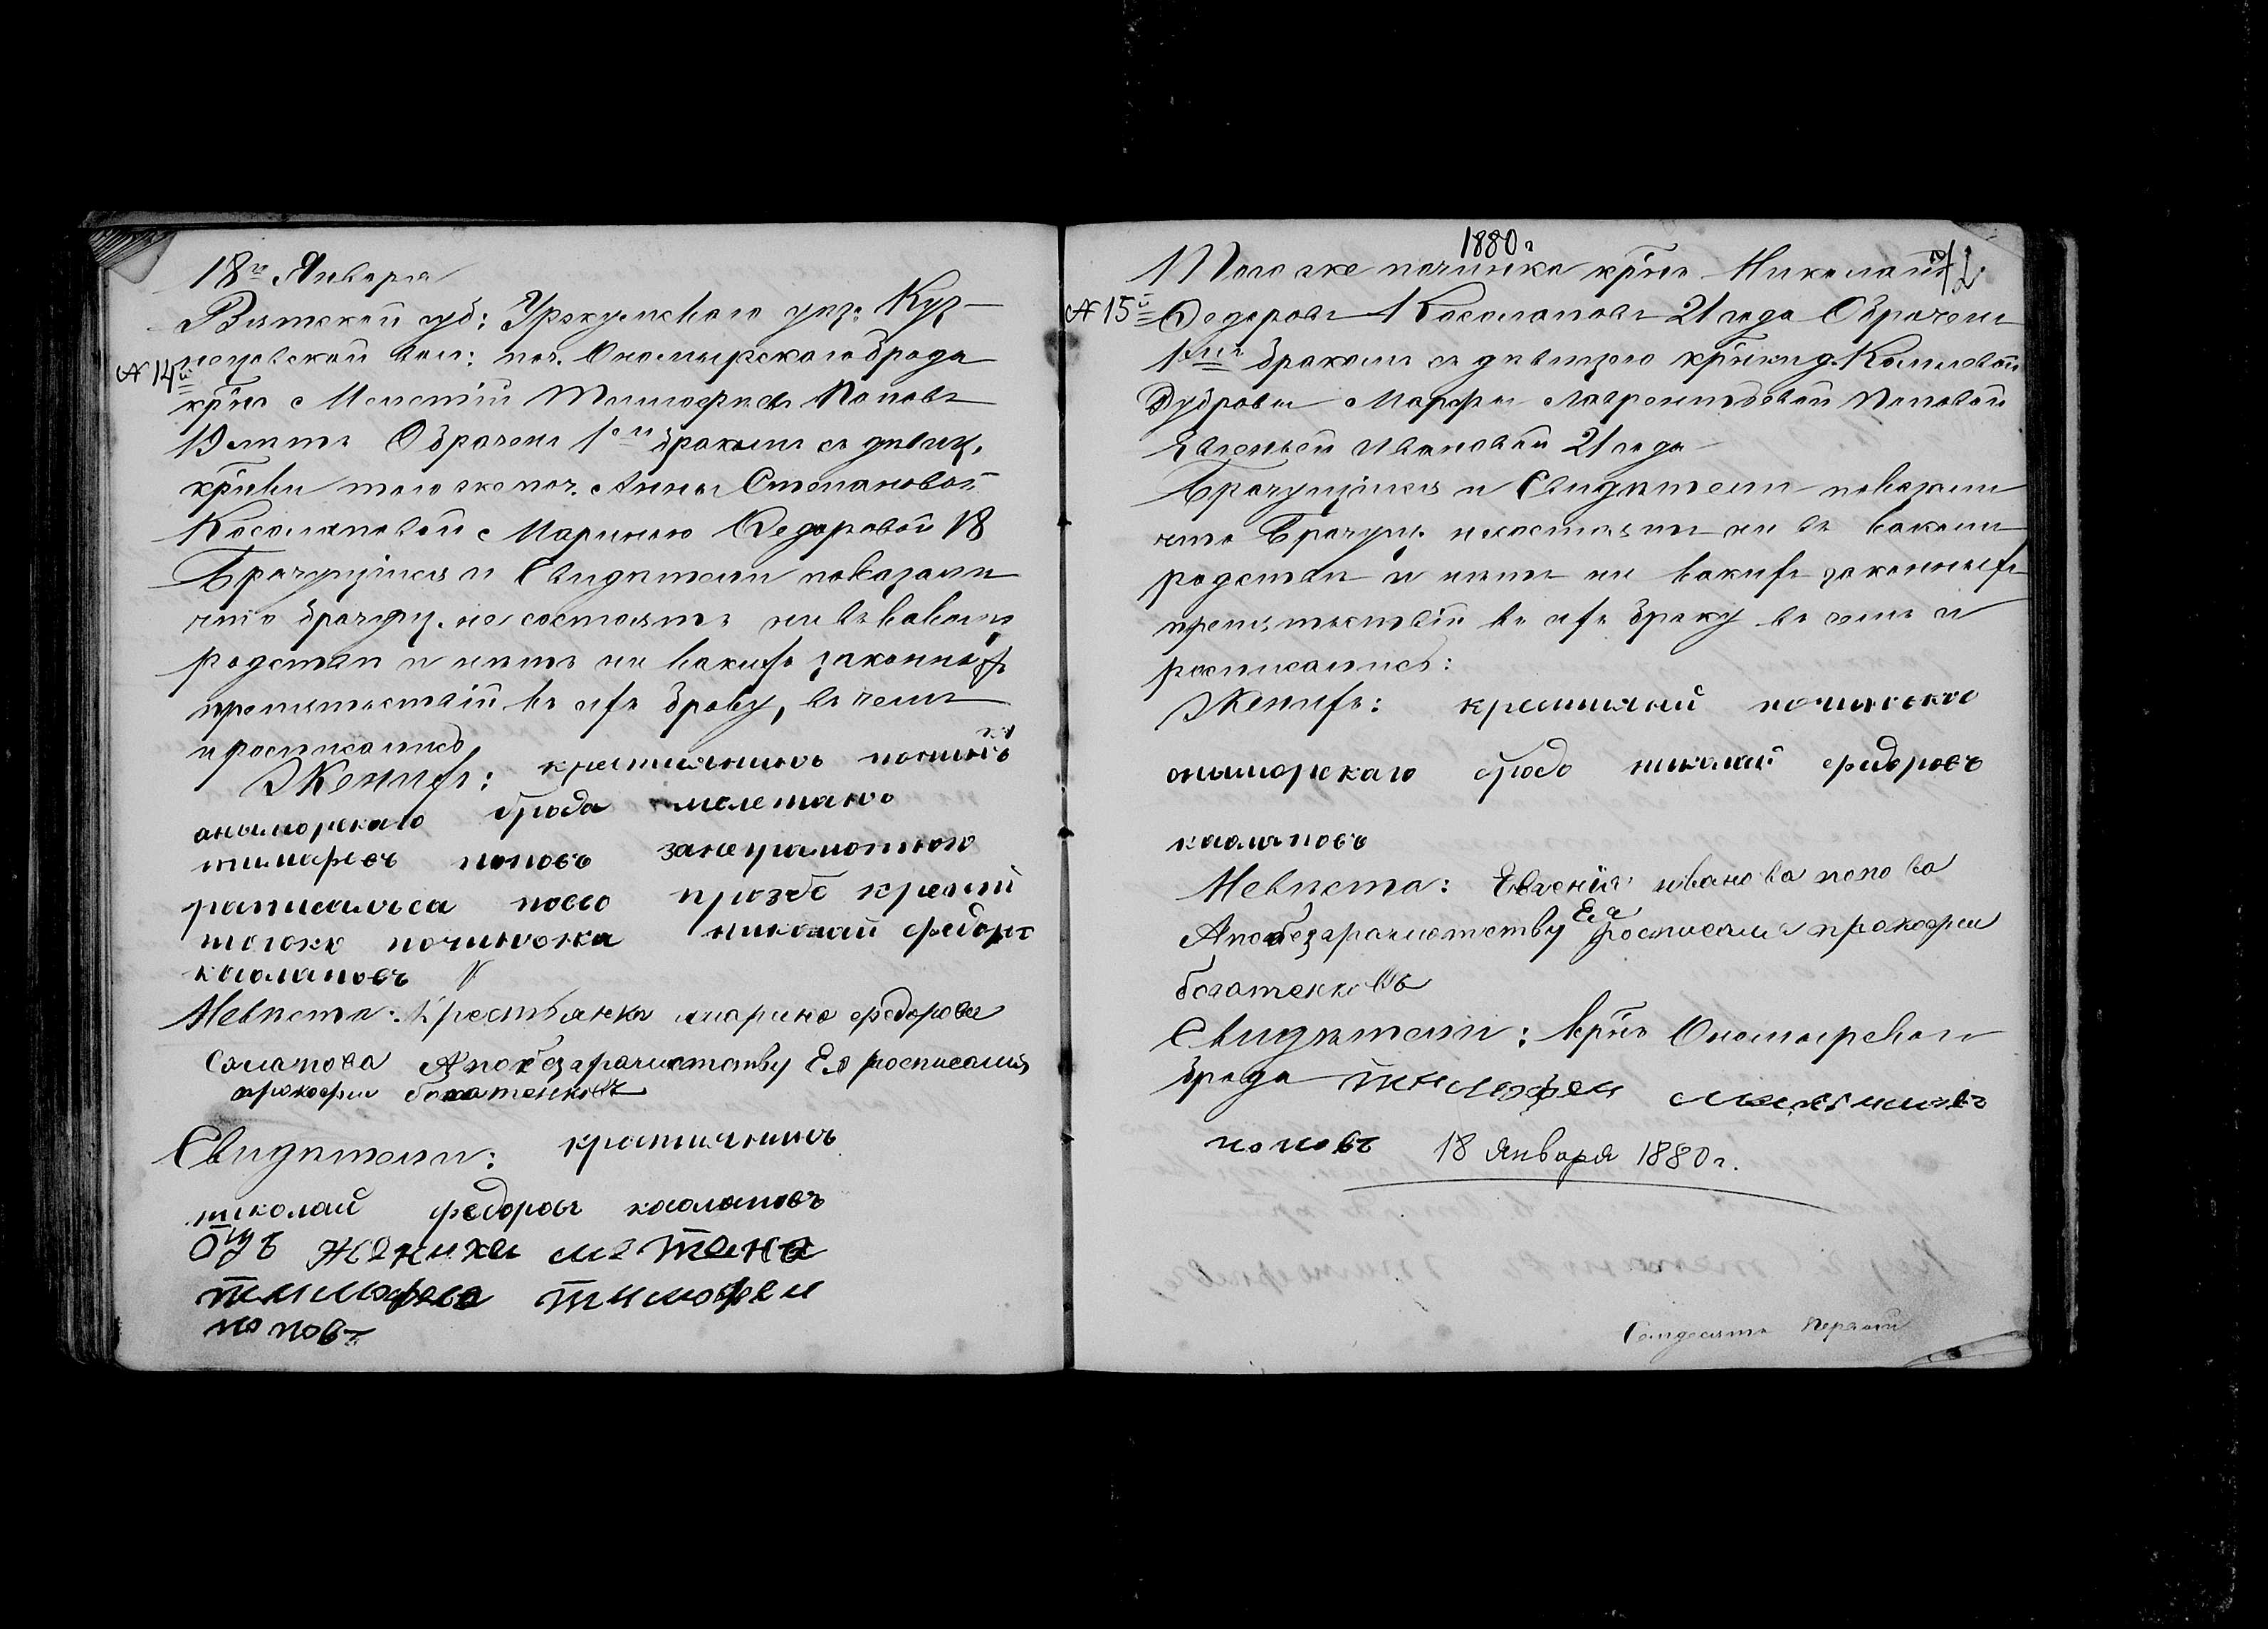 18го Января
Вятской губ: Уржумскаго уѣз. Куз-
нецовской вол: поч. Ономырскаго брода
№ 14й
крн Мелетій Тимофѣевъ Поповъ
19 лѣтъ Обрачен 1ым бракомъ съ дѣвиц.
крнки того же поч. Анны Степановой
Косолаповой Мариною Федоровой 18
Брачущіися и Свидѣтели показали
что брачущ. не состоятъ ни въ какомъ
родствѣ и нѣтъ ни какихъ законныхъ
препятствій къ ихъ браку, въ чемъ
и росписались
Женихъ: крестиянинъ починка
аныморскаго брода мелетано
тимафѣевъ поповъ занеграмотною
расписалься поево прозбе крестий
тогоже починока николай федоровъ
касолаповъ
Невѣста: Крестьянка марина федорова
Солапова А по безграмотству Ея росписался
прокофеи богатенковъ
Свидѣтели: крестиянинъ
николай федоровъ косолаповъ
Оцъ жениха мелетана
тимофева тимофеи
поповъ
1880 г
Того же починка крнъ Николай
№ 15й
Федоровъ Косолаповъ 21 года Обрачен
1ым бракомъ съ дѣвицею крнки д. Комлевой
Дубровы Марфы Лаврентьевой Поповой
Евгеньей Ивановой 21 года
Брачущіися и Свидѣтели показали
что Брачущ. несостоятъ ни въ какомъ
родствѣ и нѣтъ ни какихъ законныхъ
препятствій къ ихъ браку въ чемъ и
росписались:
Женихъ: крестияний починокаѳ
оныморскаго брода николай федоровъ
касолаповъ
Невѣста: Евгенія иванова попова
А по безграмотству Ея росписался прокофеи
богатенковъ
Свидѣтели: крнъ Ономырскаго
брода тимофеи максимовъ
поповъ 18 Января 1880 г.
Семдесятъ Первый